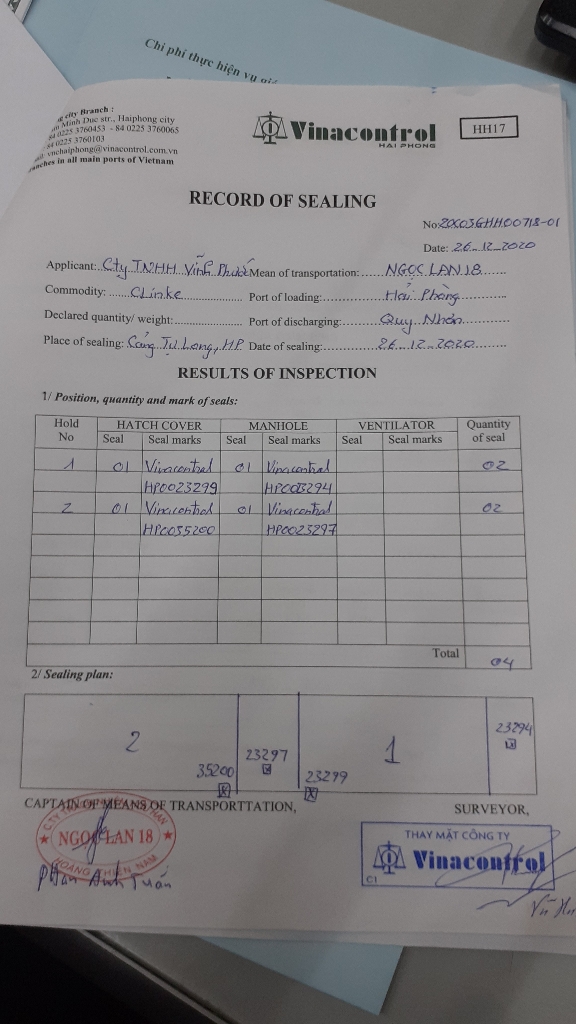 Chi phí thực hiện vụ
city Branch :
Minh Duc str., Haiphong city
84 0225 3760453 - 84 0225 3760065
84 0225 3760103
vnchaiphong@vinacontrol.com.vn
in all main ports of Vietnam
Vinacontrol
HAI PHONG
HH17
RECORD OF SEALING
No: 20C03GHH00718-01
Date: 26.12.2020
Applicant: Cty TNHH Vĩnh Phước Mean of transportation: NGỌC LAN 18
Commodity: CLinke Port of loading: Hải Phòng
Declared quantity/ weight: Port of discharging: Quy Nhơn
Place of sealing: Cảng Tự Long, HP Date of sealing: 26.12.2020
RESULTS OF INSPECTION
1/ Position, quantity and mark of seals:
Hold No HATCH COVER MANHOLE VENTILATOR Quantity of seal
Seal Seal marks Seal Seal marks Seal Seal marks
1 01 Vinacontrol 01 Vinacontrol 02
HP0023299 HP0023294
2 01 Vinacontrol 01 Vinacontrol 02
HP0035200 HP0023297
Total 04
2/ Sealing plan:
2 35200 23297 23299 1 23294
CAPTAIN OF MEANS OF TRANSPORTTATION, SURVEYOR,
NGỌC LAN 18
HOÀNG THIÊN NAM
Phan Anh Tuấn
THAY MẶT CÔNG TY
Vinacontrol
C1